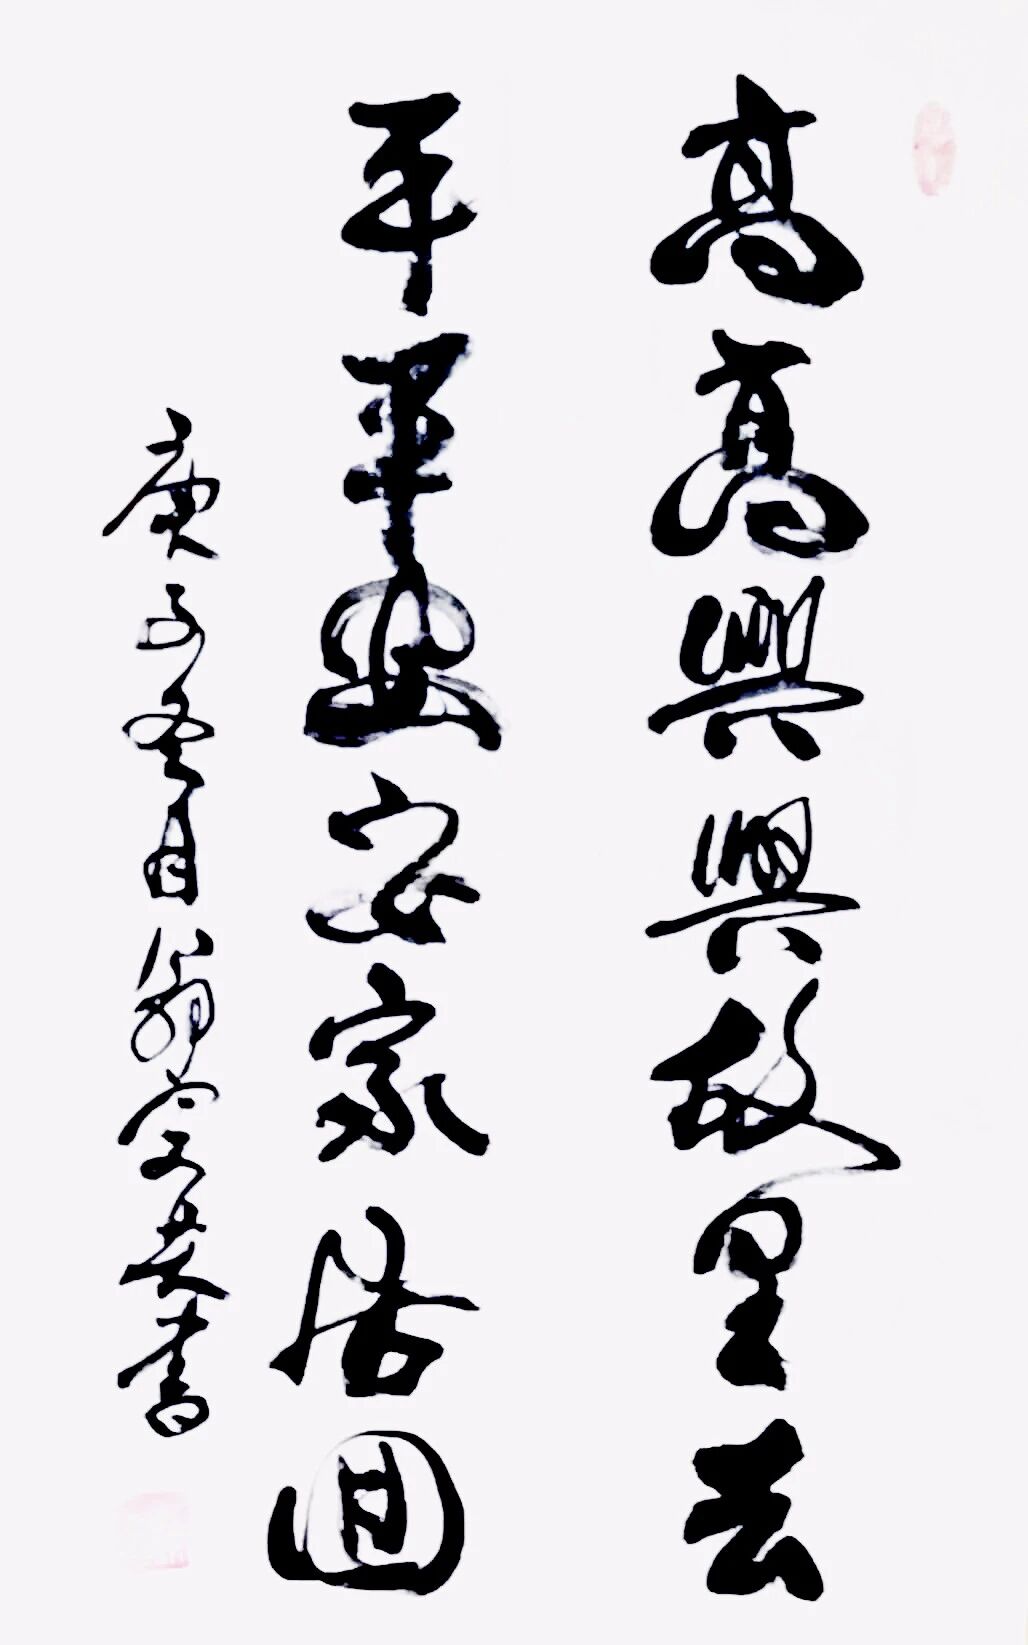 高高興興故里去
平平安安家居回
庚子冬月翁宗共書